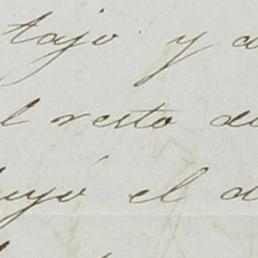 tajo. y a
l resto de
uyó el d